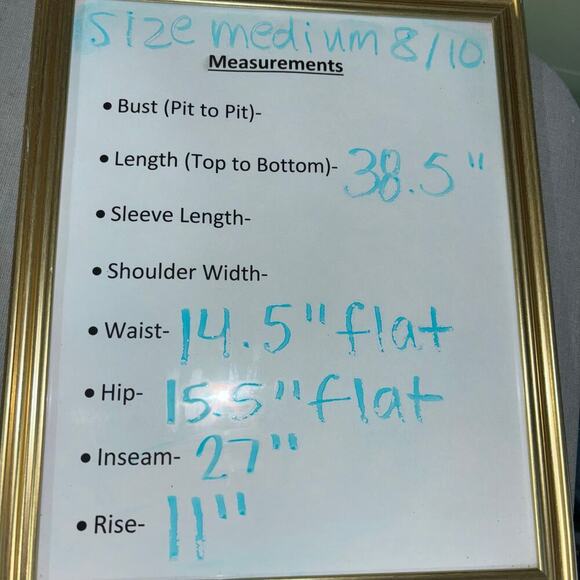 size medium 8/10
Measurements
• Bust (Pit to Pit)-
• Length (Top to Bottom)- 38.5"
• Sleeve Length-
• Shoulder Width-
• Waist- 14.5" flat
• Hip- 15.5" flat
• Inseam- 27"
• Rise- 11"